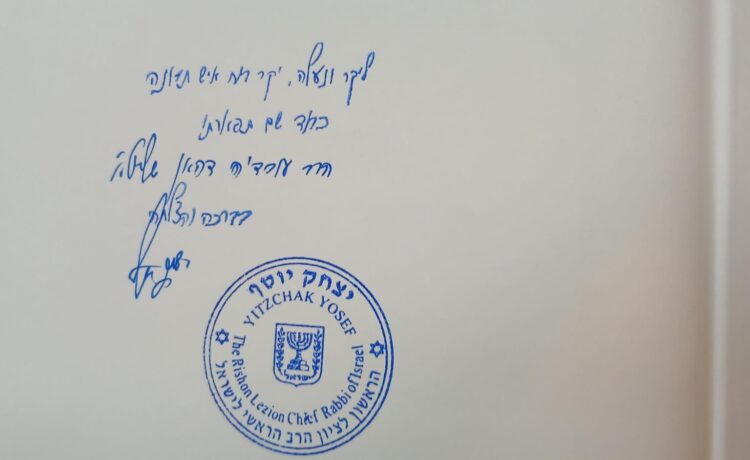 ליקר ונעלה, יקר רוח איש תבונה
כבוד שם תפארתו
הרב עובדיה דהאן שליט"א
בברכה והצלחה
יצחק יוסף
יצחק יוסף
YITZCHAK YOSEF
The Rishon Lezion Chief Rabbi of Israel
ישראל
הראשון לציון הרב הראשי לישראל